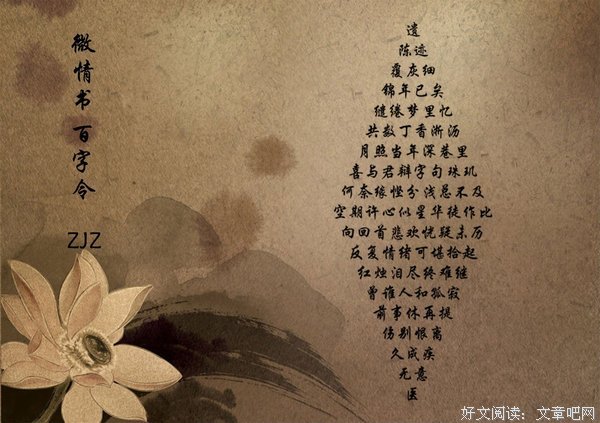 微情书 百字令
ZJZ
遗
陈迹
覆灰细
锦年已矣
缱绻梦里忆
共数丁香淅沥
月照当年深巷里
喜与君辩字句珠玑
何奈缘悭分浅总不及
空期许心似星华徒作比
向回首悲欢恍疑未历
反复情绪可堪拾起
红烛泪尽终难继
曾谁人和孤寂
前事休再提
伤别恨离
久成疾
无意
医
好文阅读：文章吧网